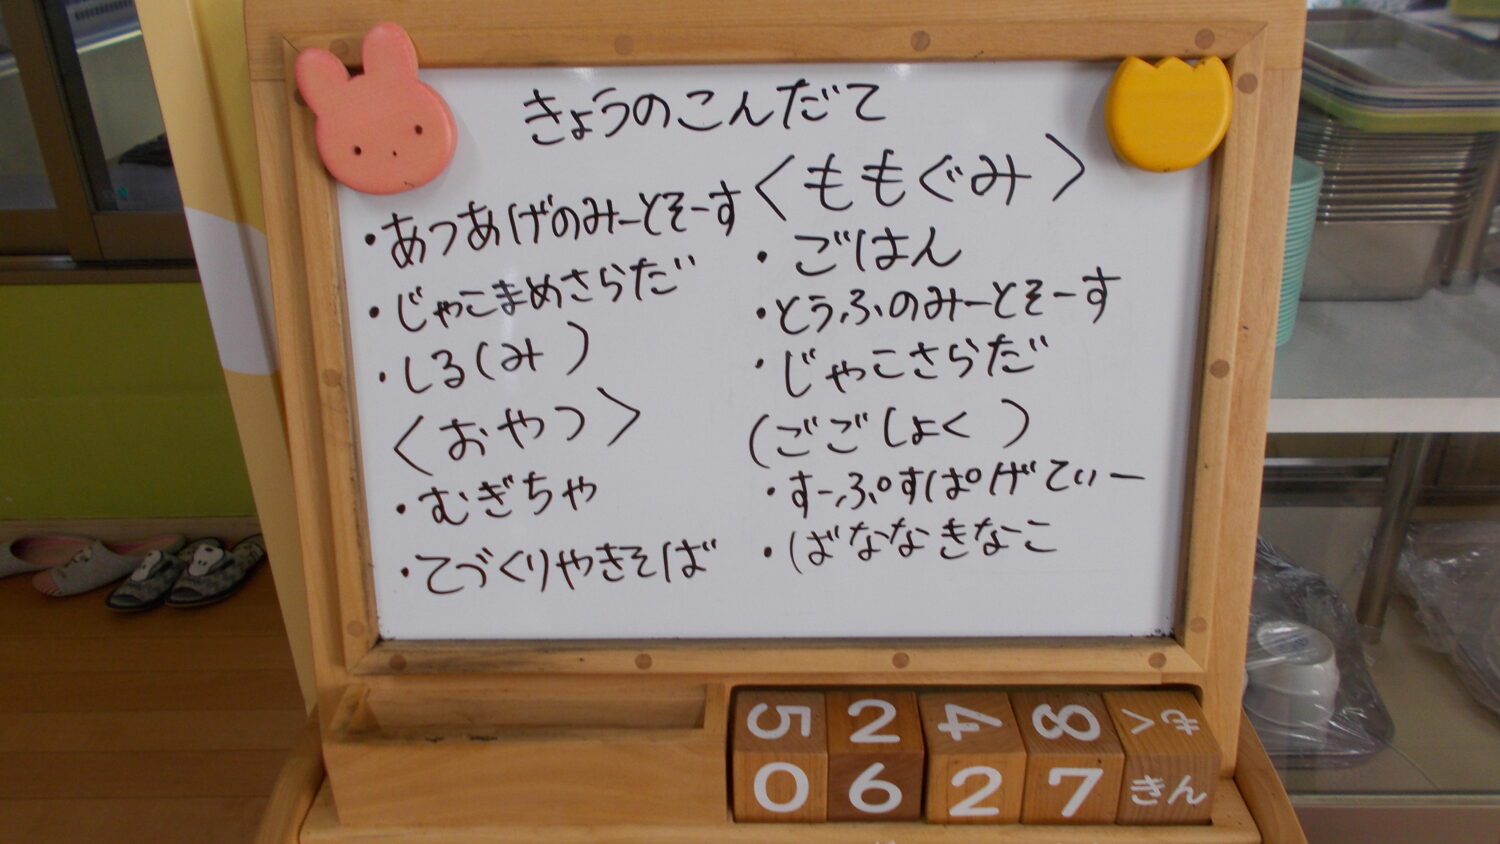 きょうのこんだて
・あつあげのみーとそーす
・じゃこまめさらだ
・しる(み )
〈おやつ〉
・むぎちゃ
・てづくりやきそば
〈ももぐみ〉
・ごはん
・とうふのみーとそーす
・じゃこさらだ
(ごごしょく )
・すーぷすぱげてぃー
・ばななきなこ
5 2 4 8 もく
0 6 2 7 きん